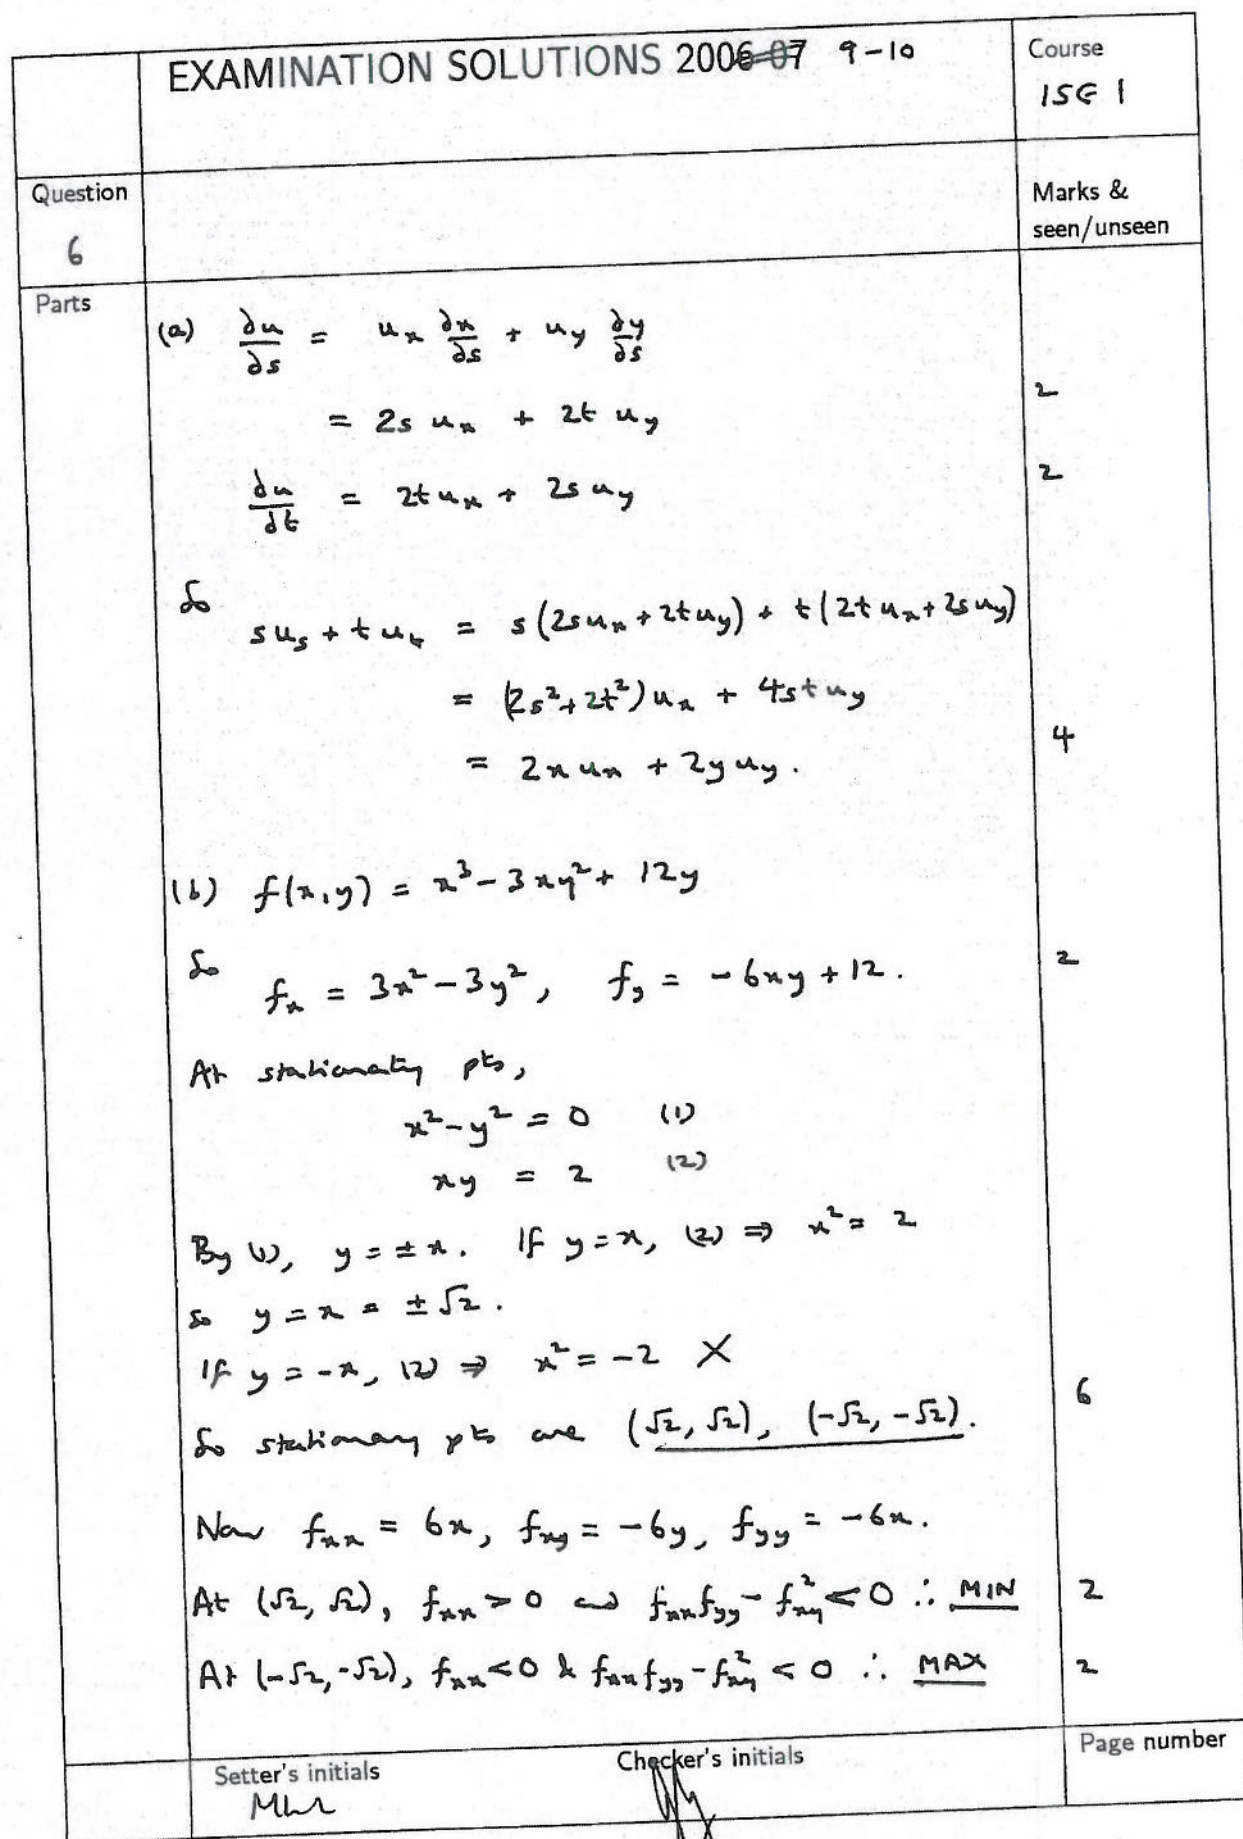 EXAMINATION SOLUTIONS 2006-07 9-10
Course
ISE 1
Question
6
Marks &
seen/unseen
Parts
(a) ∂u/∂s = u_x ∂x/∂s + u_y ∂y/∂s
= 2s u_x + 2t u_y
2
∂u/∂t = 2t u_x + 2s u_y
2
So
s u_s + t u_t = s(2s u_x + 2t u_y) + t(2t u_x + 2s u_y)
= (2s² + 2t²) u_x + 4st u_y
= 2x u_x + 2y u_y.
4
(b) f(x,y) = x³ - 3xy² + 12y
So
f_x = 3x² - 3y², f_y = -6xy + 12.
2
At stationary pts,
x² - y² = 0 (1)
xy = 2 (2)
By (1), y = ± x. If y = x, (2) ⇒ x² = 2
so y = x = ± √2.
If y = -x, (2) ⇒ x² = -2 X
So stationary pts are (√2, √2), (-√2, -√2).
6
Now f_xx = 6x, f_xy = -6y, f_yy = -6x.
At (√2, √2), f_xx > 0 and f_xx f_yy - f_xy² < 0 ∴ MIN
2
At (-√2, -√2), f_xx < 0 & f_xx f_yy - f_xy² < 0 ∴ MAX
2
Setter's initials
Checker's initials
Page number